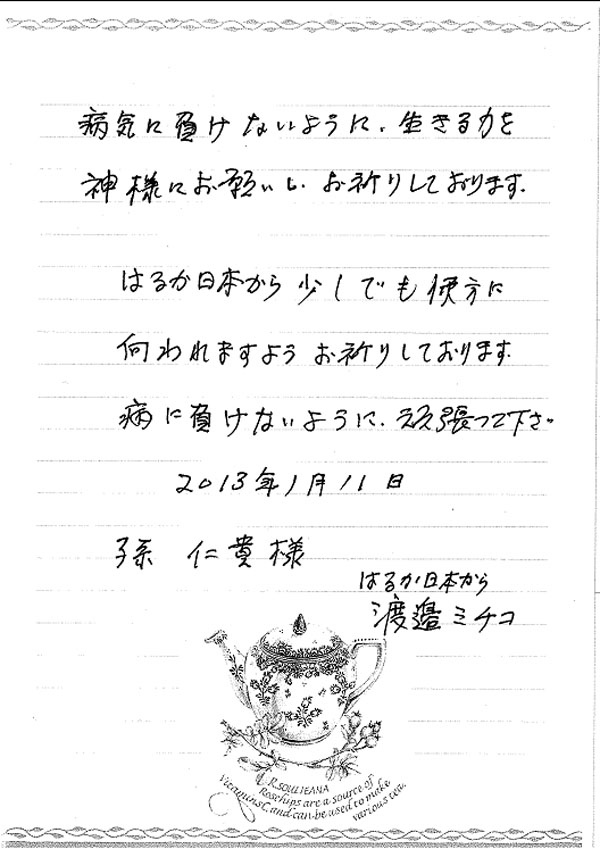 病気に負けないように、生きる力を
神様にお願いし、お祈りしております。
はるか日本から少しでも快方に
向われますようお祈りしております。
病に負けないように、頑張って下さい
2013年1月11日
孫 仁貴様
はるか日本から
渡邉ミチコ
R.SOULIEANA
Rosehips are a source of
VitaminsC.and can be used to make
various tea.